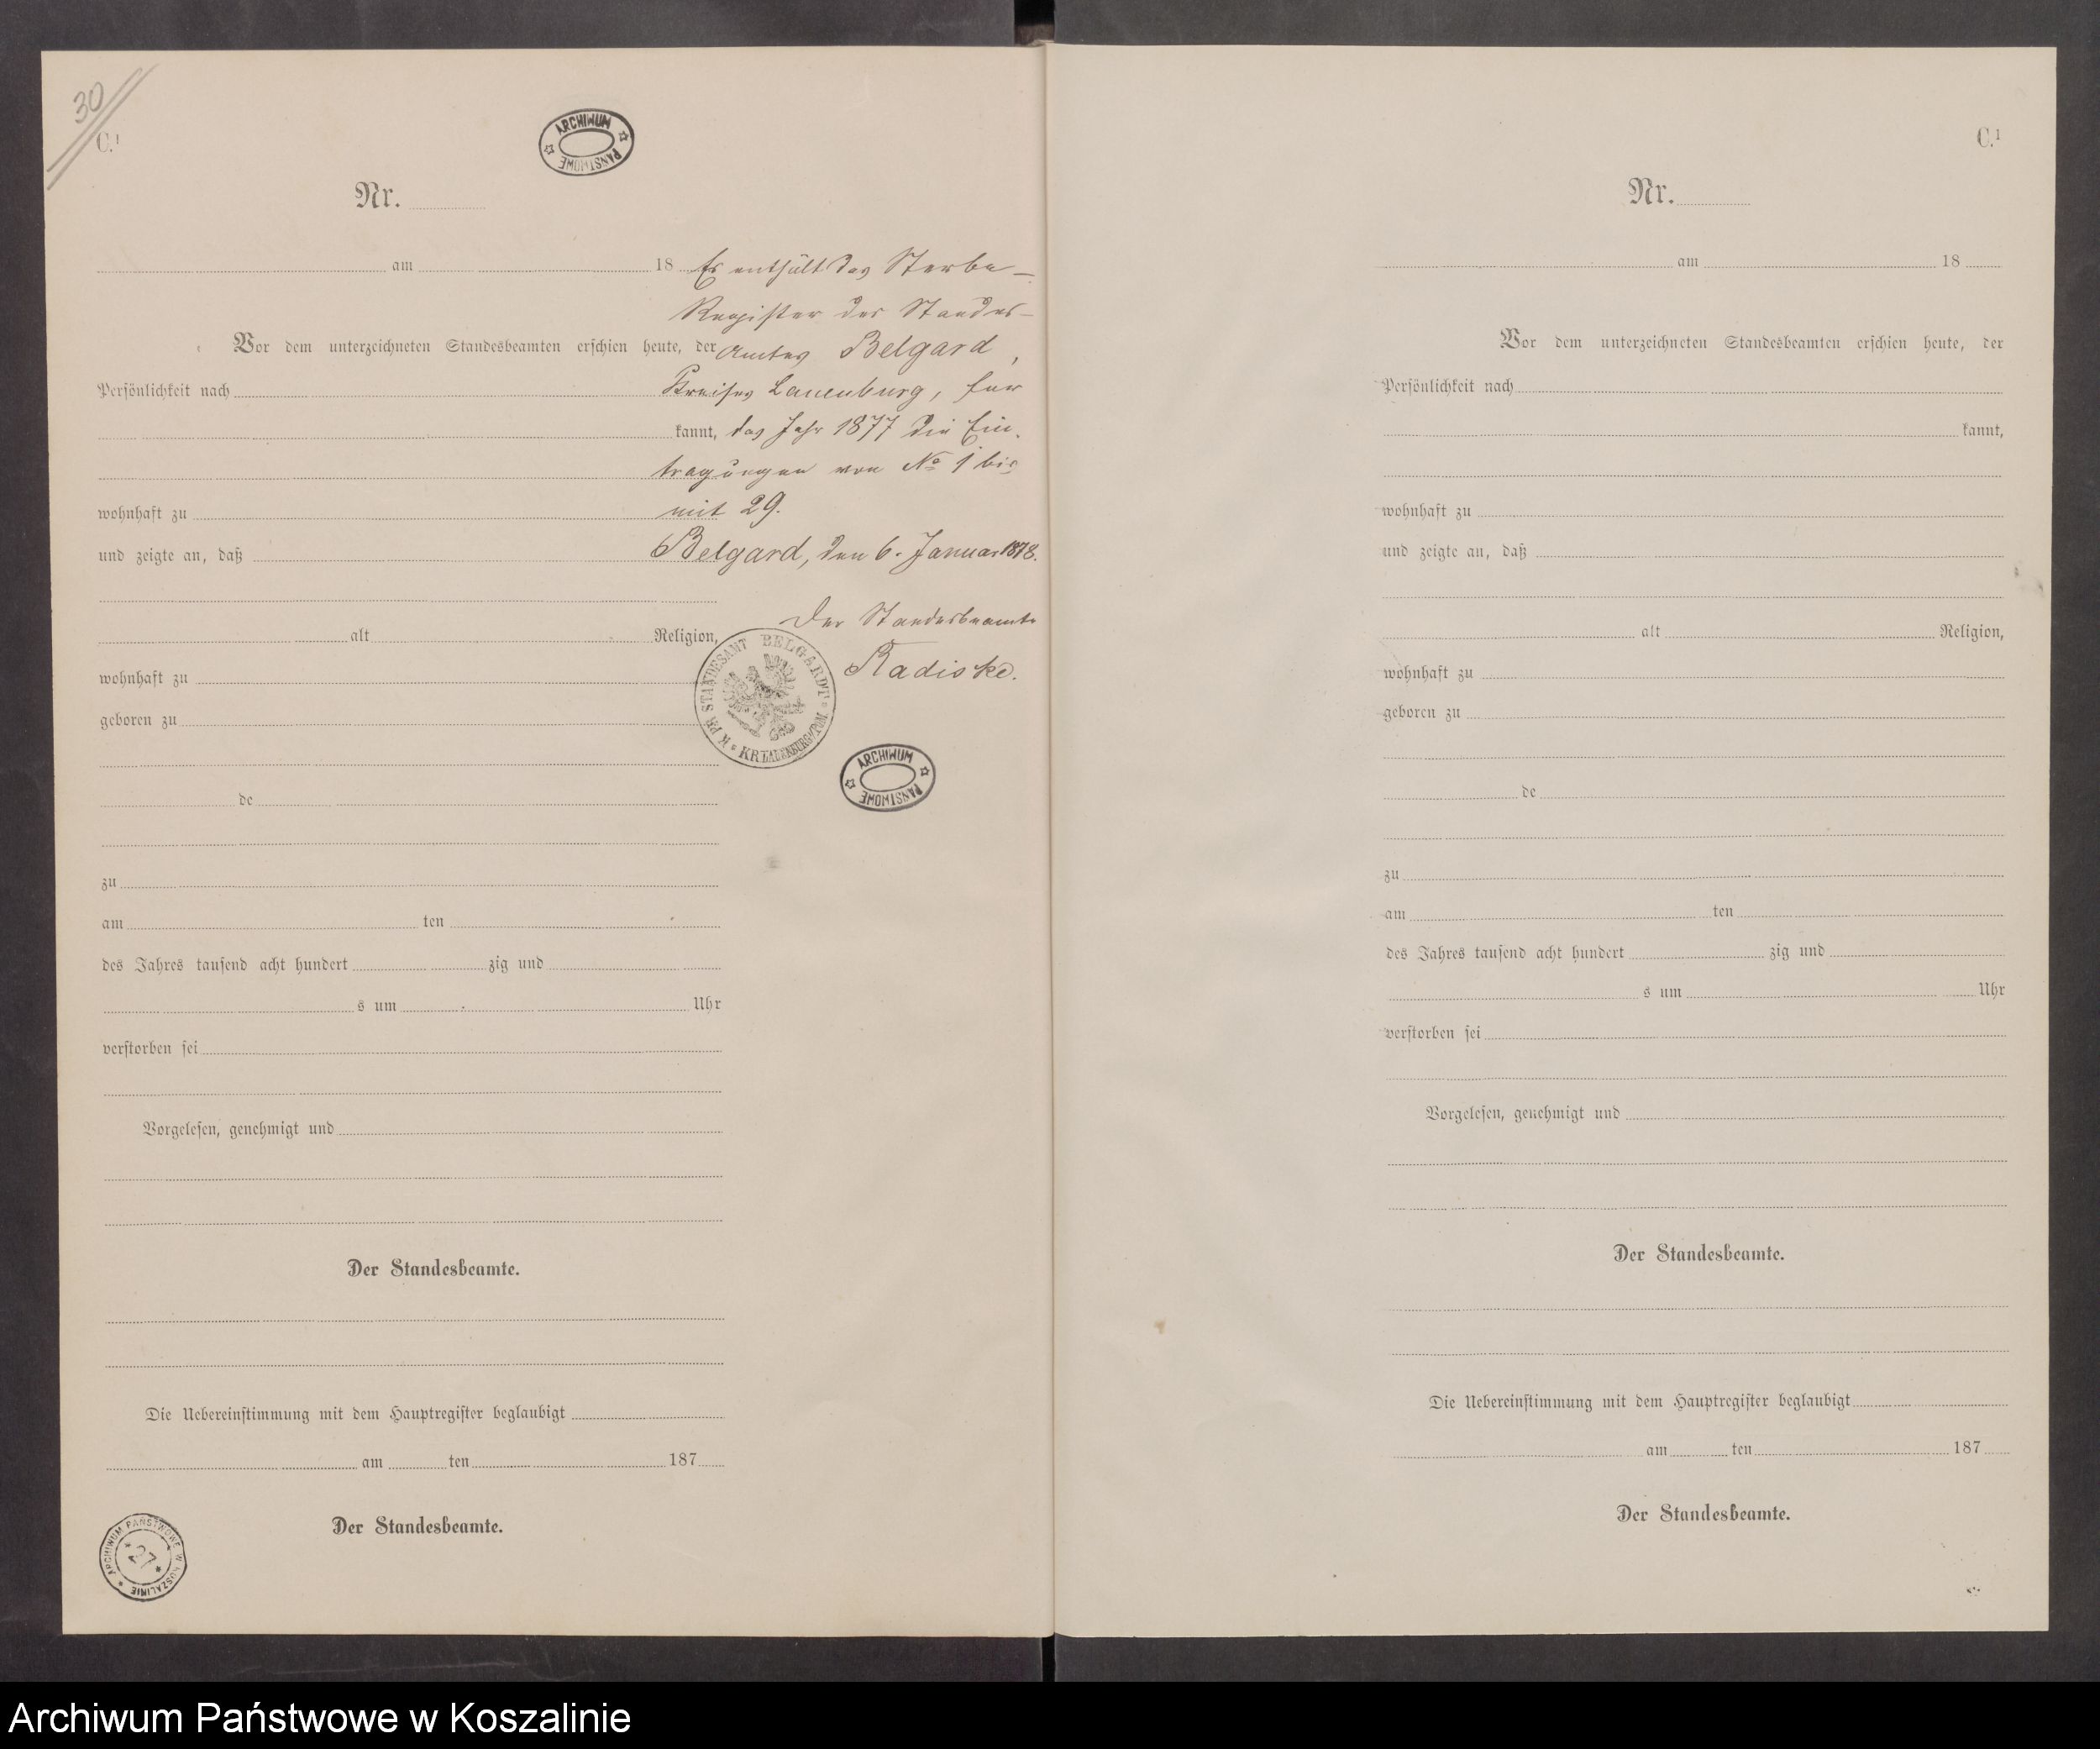 30
C.¹
ARCHIWUM PAŃSTWOWE
Nr.
am 18
Es enthält das Sterbe-
Register des Standes-
Vor dem unterzeichneten Standesbeamten erschien heute, der
Amtes Belgard,
Persönlichkeit nach
Kreises Lauenburg, für
kannt,
das Jahr 1877 die Ein-
tragungen von No 1 bis
wohnhaft zu
mit 29.
und zeigte an, daß
Belgard, den 6. Januar 1878.
Der Standesbeamte
alt Religion,
Radiske.
K. PR. STANDESAMT BELGARDT * KR. LAUENBURG I/POM *
wohnhaft zu
geboren zu
ARCHIWUM PAŃSTWOWE
de
zu
am ten
des Jahres tausend acht hundert zig und
s um Uhr
verstorben sei
Vorgelesen, genehmigt und
Der Standesbeamte.
Die Uebereinstimmung mit dem Hauptregister beglaubigt
am ten 187
Der Standesbeamte.
ARCHIWUM PAŃSTWOWE W KOSZALINIE
* 27 *
C.¹
Nr.
am 18
Vor dem unterzeichneten Standesbeamten erschien heute, der
Persönlichkeit nach
kannt,
wohnhaft zu
und zeigte an, daß
alt Religion,
wohnhaft zu
geboren zu
de
zu
am ten
des Jahres tausend acht hundert zig und
s um Uhr
verstorben sei
Vorgelesen, genehmigt und
Der Standesbeamte.
Die Uebereinstimmung mit dem Hauptregister beglaubigt
am ten 187
Der Standesbeamte.
Archiwum Państwowe w Koszalinie